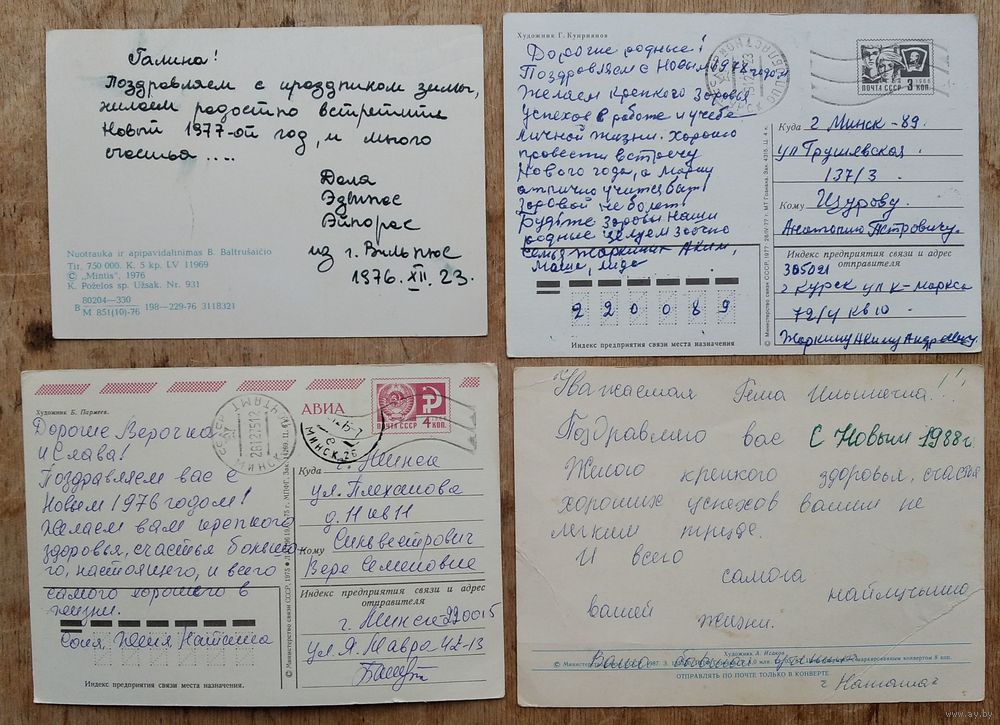 Галина!
Поздравляем с праздником зимы,
желаем радостно встретить
Новый 1977-ой год, и много
счастья ....
Дала
Эдвинас
Айнорас
из г. Вильнюс
1976. XII. 23.
Nuotrauka ir apipavidalinimas B. Baltrušaičio
Tir. 750 000. K. 5 kp. LV 11969
© „Mintis", 1976
K. Poželos sp. Užsak. Nr. 931
B 80204—330
M 851(10)-76 198—229-76 3118321
Художник Г. Куприянов
Дорогие родные!
Поздравляем с Новым 1978 годом
Желаем крепкого здоровья
успехов в работе и учебе
личной жизни. Хорошо
провести встречу
Нового года, а Марину
отлично учится быть
здоровой не болеть
Будьте здоровы наши
родные целуем заочно
семья Жаркиных Аким,
Маша, Лида
ПОЧТА СССР 3 КОП.
Куда г Минск-89
ул Грушевская
137/3.
Кому Щурову.
Анатолию Петровичу.
Индекс предприятия связи и адрес
отправителя
305021
г Курск ул К-Маркса
72/4 кв 10
Жаркину Акиму Андреевичу.
220089
Индекс предприятия связи места назначения
© Министерство связи СССР, 1977.
Художник Б. Пармеев.
Дорогие Верочка
и Слава!
Поздравляем вас с
Новым 1976 годом!
Желаем вам крепкого
здоровья, счастья большо-
го, настоящего, и всего
самого хорошего в
жизни.
Соня, Женя Наташа
Индекс предприятия связи места назначения.
© Министерство связи СССР, 1975
АВИА
ПОЧТА СССР 4 КОП.
МИНСК
281275
Куда Минск
ул. Плеханова
д. 11 кв 11
Кому Сильвестрович
Вере Семеновне
Индекс предприятия связи и адрес
отправителя
г. Минск 220015
ул. Я. Мавра 42-13
Уважаемая Гема Ильинична!!!
Поздравляю вас С Новым 1988г.
Желаю крепкого здоровья, счастья
хороших успехов вашим не
легким труде.
И всего
самога
найлучшию
вашей жизни.
Художник А. Исаков
ОТПРАВЛЯТЬ ПО ПОЧТЕ ТОЛЬКО В КОНВЕРТЕ
Ваша бывшая ученица
г Наташа
www.ay.by